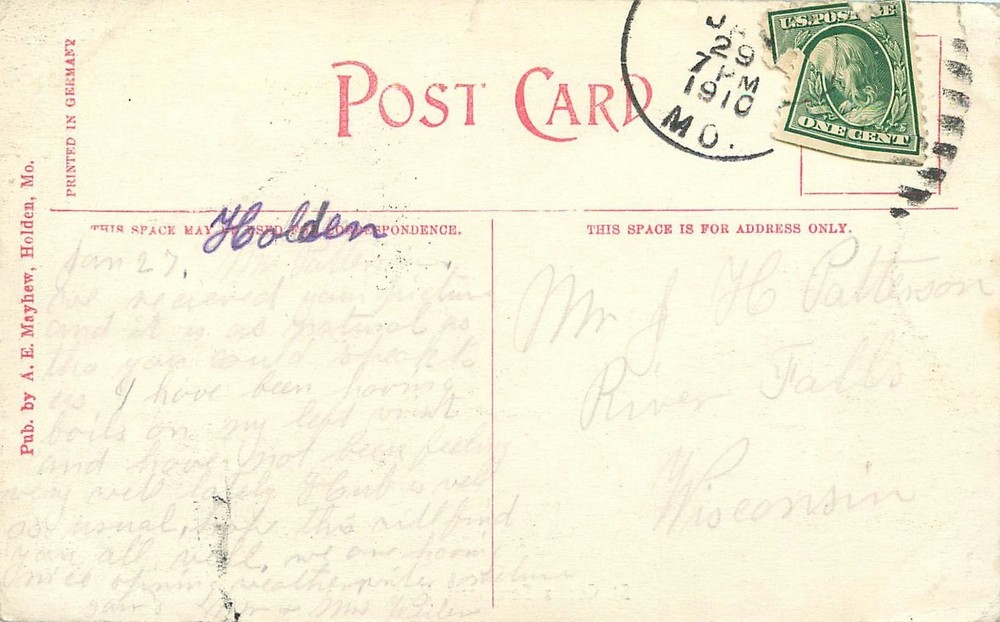 PRINTED IN GERMANY
Pub. by A. E. Mayhew, Holden, Mo.
POST CARD
JA
29
7 PM
1910
MO.
U.S. POSTAGE
ONE CENT
THIS SPACE MAY BE USED FOR CORRESPONDENCE.
Holden
THIS SPACE IS FOR ADDRESS ONLY.
Jan 27, Mr Patterson
we received your picture
and it is as natural as
tho you could speak to
us I have been having
boils on my left wrist
and have not been feeling
very well lately Hub is well
as usual, hope this will find
you all well, we are having
nice spring weather, write sometime
yours Mr & Mrs
Mr J H Patterson
River Falls
Wisconsin